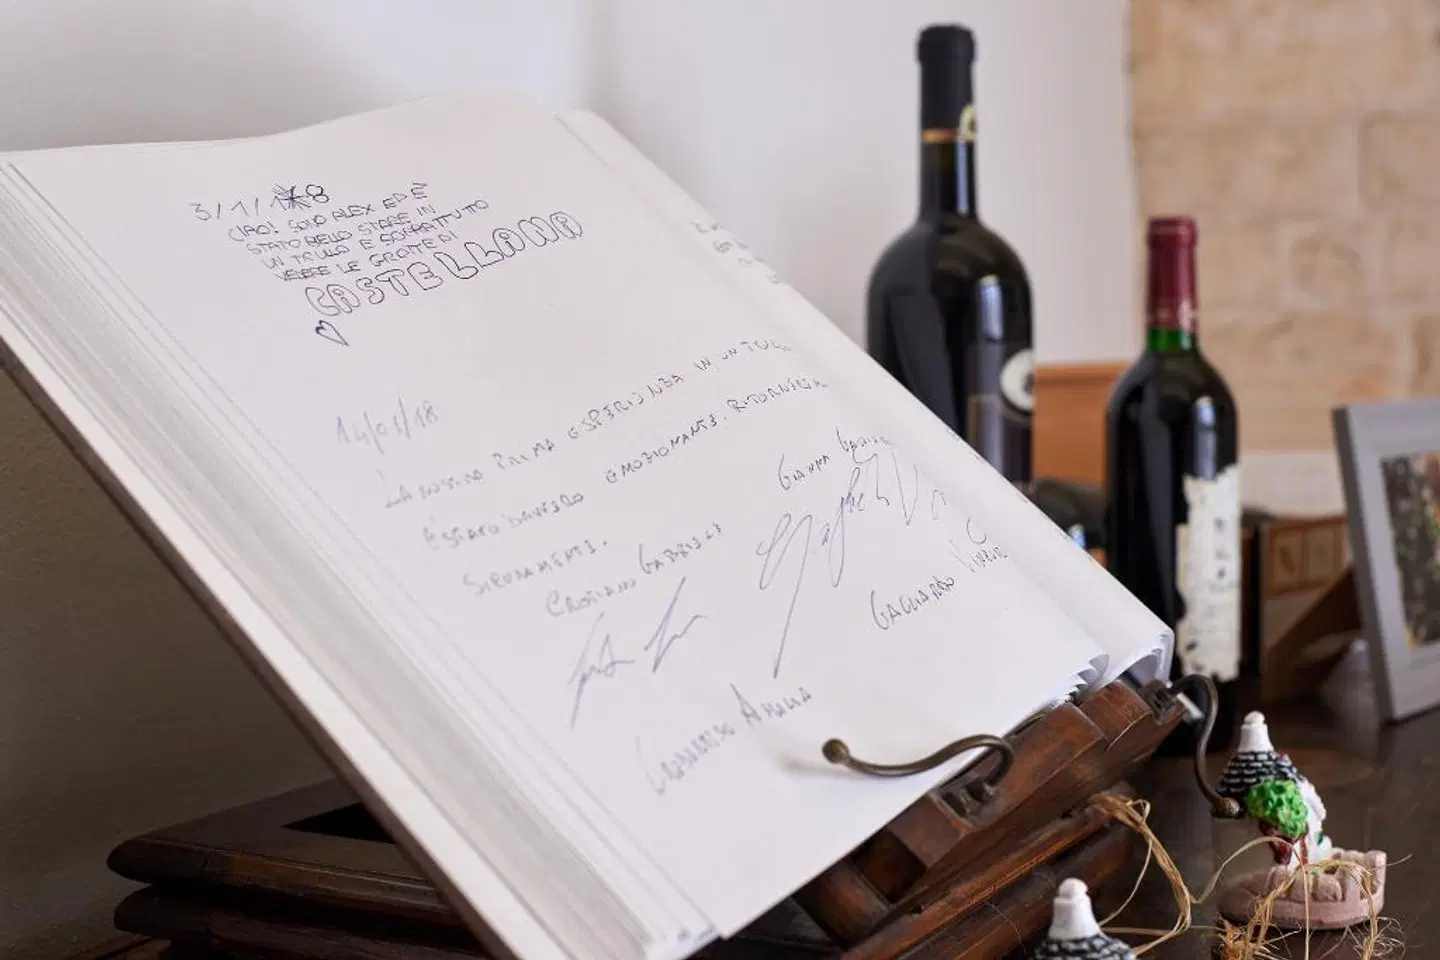 3/1/18
CIAO! SONO ALEX ED È
STATO BELLO STARE IN
UN TRULLO E SOPRATTUTTO
VEDERE LE GROTTE DI
CASTELLANA
14/01/18
LA NOSTRA PRIMA ESPERIENZA IN UN
È STATO DAVVERO EMOZIONANTE. RITORNEREMO
SICURAMENTE.
CRISTIANO GABRIELE
GIANNA
GAGLIARDO
AMALIA